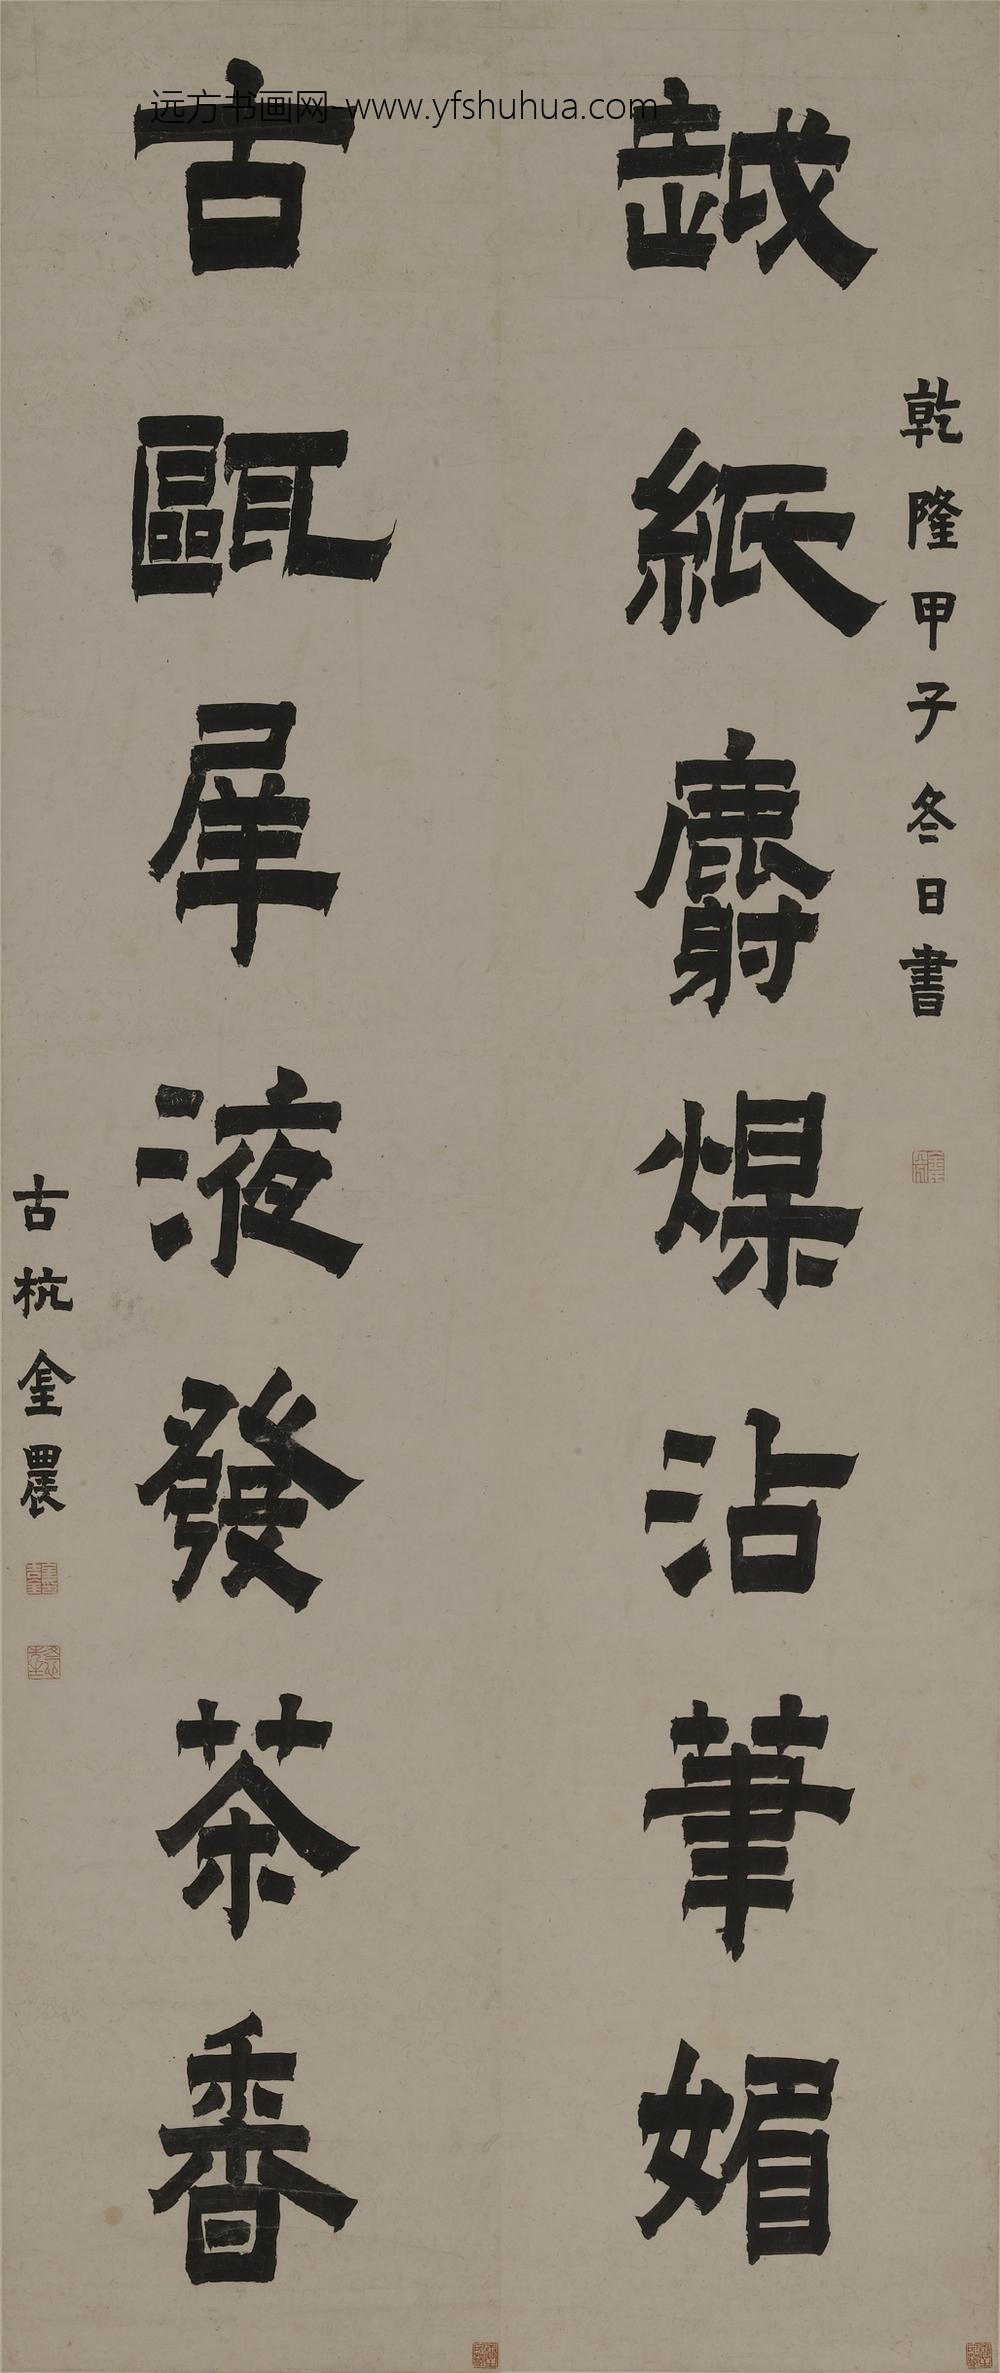 远方书画网-www.yfshuhua.com
乾隆甲子冬日書
越紙麝煤沾筆媚
古甌犀液發茶香
古杭金農